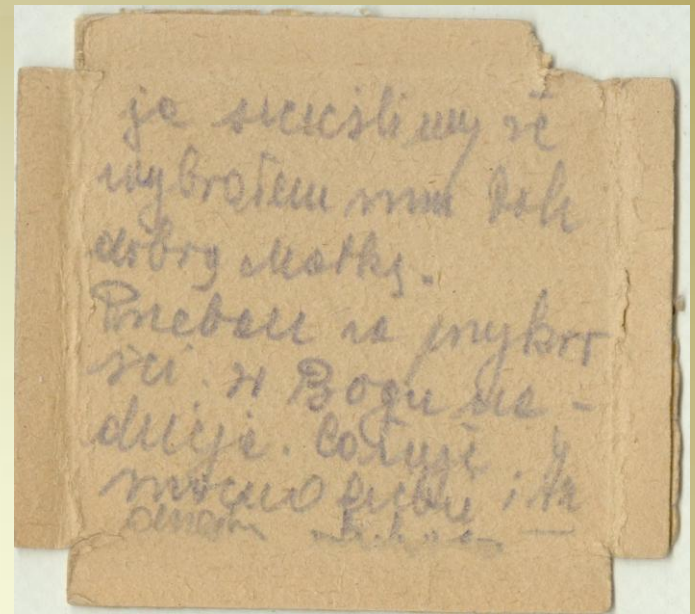 ję szczęśliwy że
wybrałem mu tak
dobrą Matkę.
Przebacz za przykro
ści. W Bogu na-
dzieja. Całuję
mocno Ciebie i